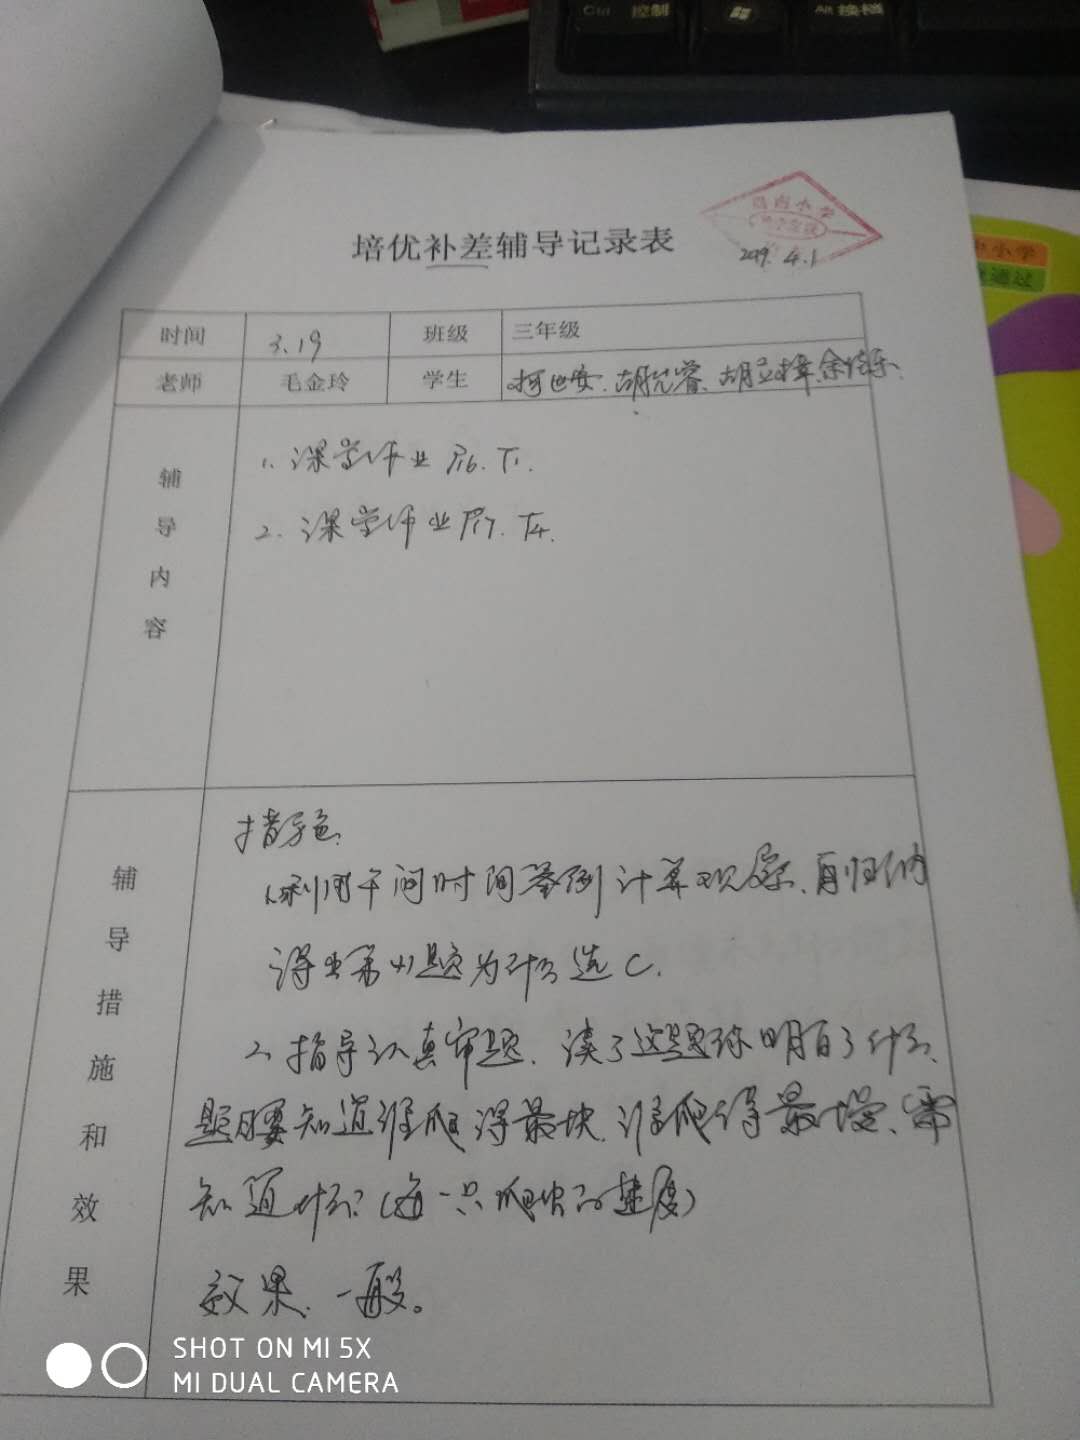 Ctrl 控制
Alt 换档
小学
2019.4.1
小学
通过
培优补差辅导记录表
时间 3.19 班级 三年级
老师 毛金玲 学生 柯世安、胡 睿、胡立 、余 乐
辅导内容
1、课堂作业P16、T1.
2、课堂作业P17、T4.
辅导措施和效果
措施:
1、利用午间时间举例计算观察、再归纳
得出第(4)题为什么选C.
2、指导认真审题、读了这题你明白了什么、
题目要知道谁爬得最快、谁爬得最慢、需
知道什么?(每一只爬虫的速度)
效果:一般。
SHOT ON MI 5X
MI DUAL CAMERA